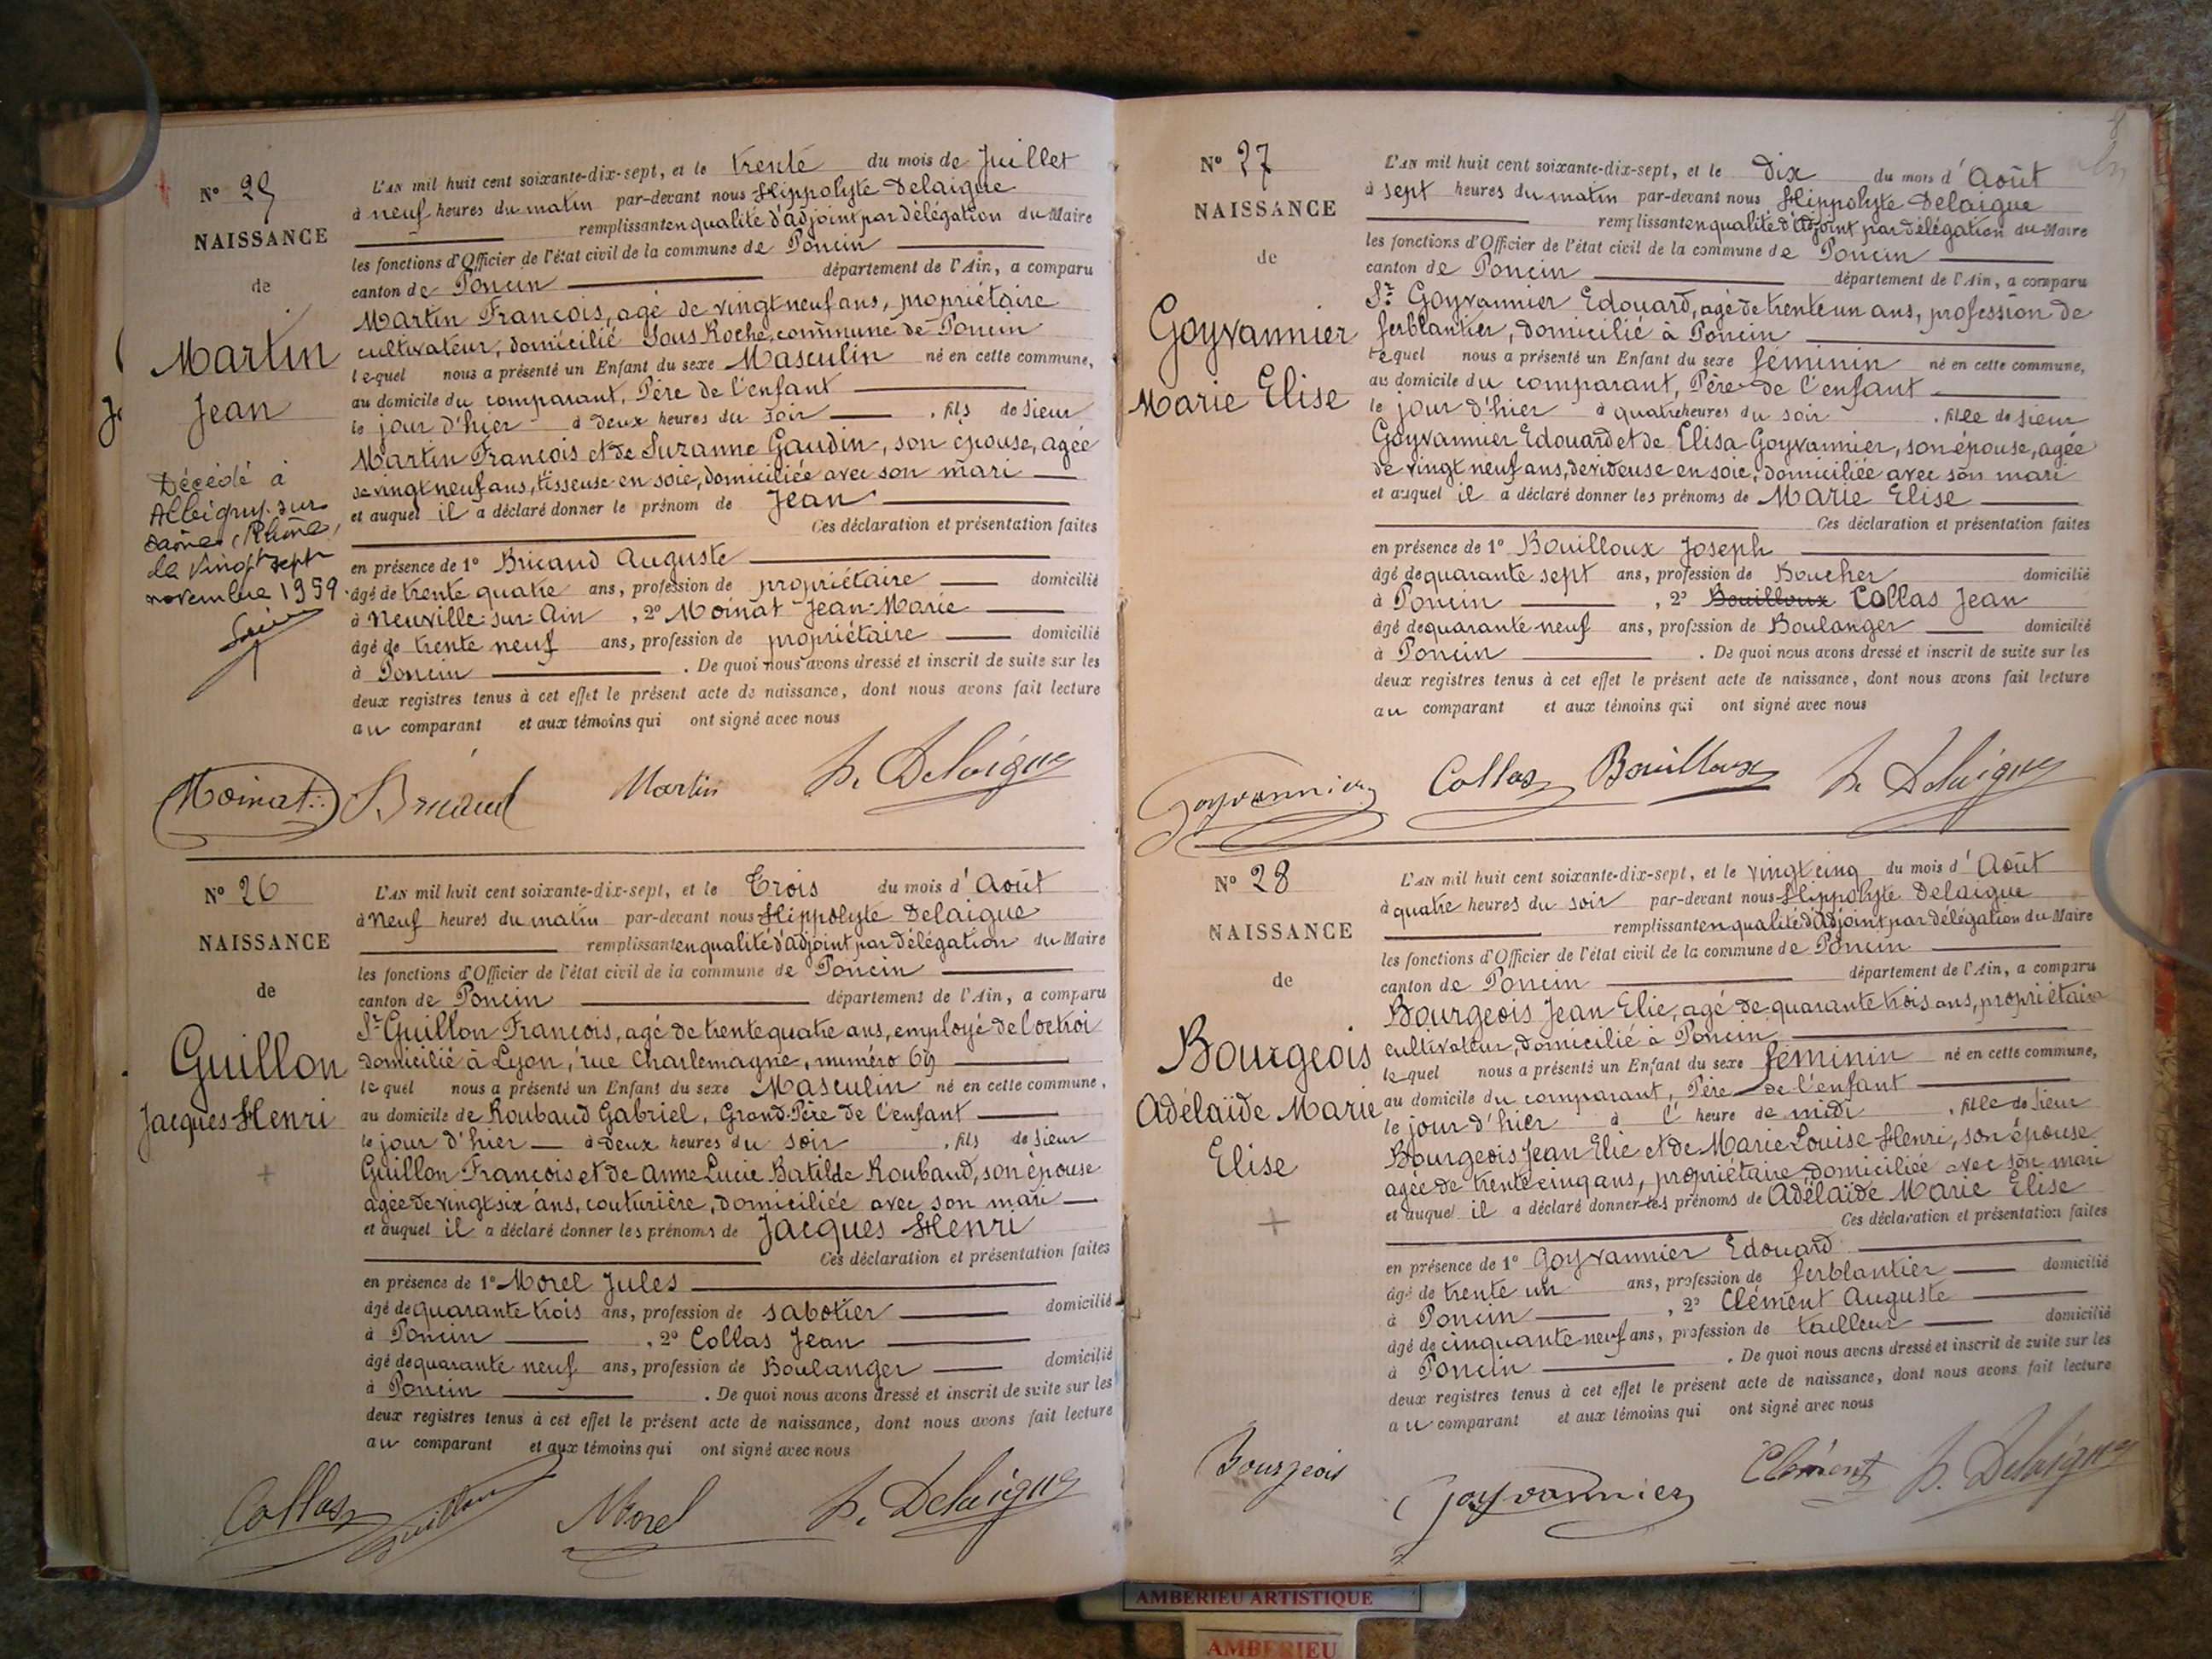 N° 25
NAISSANCE
de
Martin
Jean
Décédé à
Albigny sur
Saône (Rhône)
le vingt sept
novembre 1959
L'AN mil huit cent soixante-dix-sept, et le trente du mois de Juillet
à neuf heures du matin par-devant nous Hippolyte Delaigue
remplissant en qualité d'adjoint par délégation du Maire
les fonctions d'Officier de l'état civil de la commune de Poncin
canton de Poncin département de l'Ain, a comparu
Martin François, agé de vingt neuf ans, propriétaire
cultivateur, domicilié Sous Roche, commune de Poncin
lequel nous a présenté un Enfant du sexe Masculin né en cette commune,
au domicile du comparant, Père de l'enfant
le jour d'hier à deux heures du soir, fils de sieur
Martin François et de Suzanne Gaudin, son épouse, agée
de vingt neuf ans, tisseuse en soie, domiciliée avec son mari
et auquel il a déclaré donner le prénom de Jean
Ces déclaration et présentation faites
en présence de 1° Bricaud Auguste
âgé de trente quatre ans, profession de propriétaire domicilié
à Neuville-sur-Ain, 2° Moinat Jean-Marie
âgé de trente neuf ans, profession de propriétaire domicilié
à Poncin. De quoi nous avons dressé et inscrit de suite sur les
deux registres tenus à cet effet le présent acte de naissance, dont nous avons fait lecture
au comparant et aux témoins qui ont signé avec nous
Moinat Bricaud Martin h. Delaigue
N° 26
NAISSANCE
de
Guillon
Jacques Henri
L'AN mil huit cent soixante-dix-sept, et le Trois du mois d'Août
à Neuf heures du matin par-devant nous Hippolyte Delaigue
remplissant en qualité d'adjoint par délégation du Maire
les fonctions d'Officier de l'état civil de la commune de Poncin
canton de Poncin département de l'Ain, a comparu
Sr Guillon François, agé de trente quatre ans, employé de l'octroi
domicilié à Lyon, rue Charlemagne, numéro 69
lequel nous a présenté un Enfant du sexe Masculin né en cette commune,
au domicile de Roubaud Gabriel, Grand-Père de l'enfant
le jour d'hier à deux heures du soir, fils de sieur
Guillon François et de Anne Lucie Batilde Roubaud, son épouse
agée de vingt six ans, couturière, domiciliée avec son mari
et auquel il a déclaré donner les prénoms de Jacques Henri
Ces déclaration et présentation faites
en présence de 1° Morel Jules
âgé de quarante trois ans, profession de sabotier domicilié
à Poncin, 2° Collas Jean
âgé de quarante neuf ans, profession de Boulanger domicilié
à Poncin. De quoi nous avons dressé et inscrit de suite sur les
deux registres tenus à cet effet le présent acte de naissance, dont nous avons fait lecture
au comparant et aux témoins qui ont signé avec nous
Collas Guillon Morel h. Delaigue
N° 27
NAISSANCE
de
Goyvannier
Marie Elise
L'AN mil huit cent soixante-dix-sept, et le Dix du mois d'Août
à sept heures du matin par-devant nous Hippolyte Delaigue
remplissant en qualité d'Adjoint par délégation du Maire
les fonctions d'Officier de l'état civil de la commune de Poncin
canton de Poncin département de l'Ain, a comparu
Sr Goyvannier Edouard, agé de trente un ans, profession de
ferblantier, domicilié à Poncin
lequel nous a présenté un Enfant du sexe féminin né en cette commune,
au domicile du comparant, Père de l'enfant
le jour d'hier à quatre heures du soir, fille de sieur
Goyvannier Edouard et de Elisa Goyvannier, son épouse, agée
de vingt neuf ans, devideuse en soie, domiciliée avec son mari
et auquel il a déclaré donner les prénoms de Marie Elise
Ces déclaration et présentation faites
en présence de 1° Bouilloux Joseph
âgé de quarante sept ans, profession de Boucher domicilié
à Poncin, 2° Bouilloux Collas Jean
âgé de quarante neuf ans, profession de Boulanger domicilié
à Poncin. De quoi nous avons dressé et inscrit de suite sur les
deux registres tenus à cet effet le présent acte de naissance, dont nous avons fait lecture
au comparant et aux témoins qui ont signé avec nous
Goyvannier Collas Bouilloux h. Delaigue
N° 28
NAISSANCE
de
Bourgeois
Adélaïde Marie
Elise
L'AN mil huit cent soixante-dix-sept, et le vingt cinq du mois d'Août
à quatre heures du soir par-devant nous Hippolyte Delaigue
remplissant en qualité d'adjoint par délégation du Maire
les fonctions d'Officier de l'état civil de la commune de Poncin
canton de Poncin département de l'Ain, a comparu
Bourgeois Jean Elie, agé de quarante trois ans, propriétaire
cultivateur, domicilié à Poncin
lequel nous a présenté un Enfant du sexe féminin né en cette commune,
au domicile du comparant, Père de l'enfant
le jour d'hier à l'heure de midi, fille de sieur
Bourgeois Jean Elie et de Marie Louise Henri, son épouse
agée de trente cinq ans, propriétaire domiciliée avec son mari
et auquel il a déclaré donner les prénoms de Adélaïde Marie Elise
Ces déclaration et présentation faites
en présence de 1° Goyvannier Edouard
âgé de trente un ans, profession de ferblantier domicilié
à Poncin, 2° Clément Auguste
âgé de cinquante neuf ans, profession de tailleur domicilié
à Poncin. De quoi nous avons dressé et inscrit de suite sur les
deux registres tenus à cet effet le présent acte de naissance, dont nous avons fait lecture
au comparant et aux témoins qui ont signé avec nous
Bourgeois Goyvannier Clément h. Delaigue
AMBERIEU ARTISTIQUE
AMBERIEU